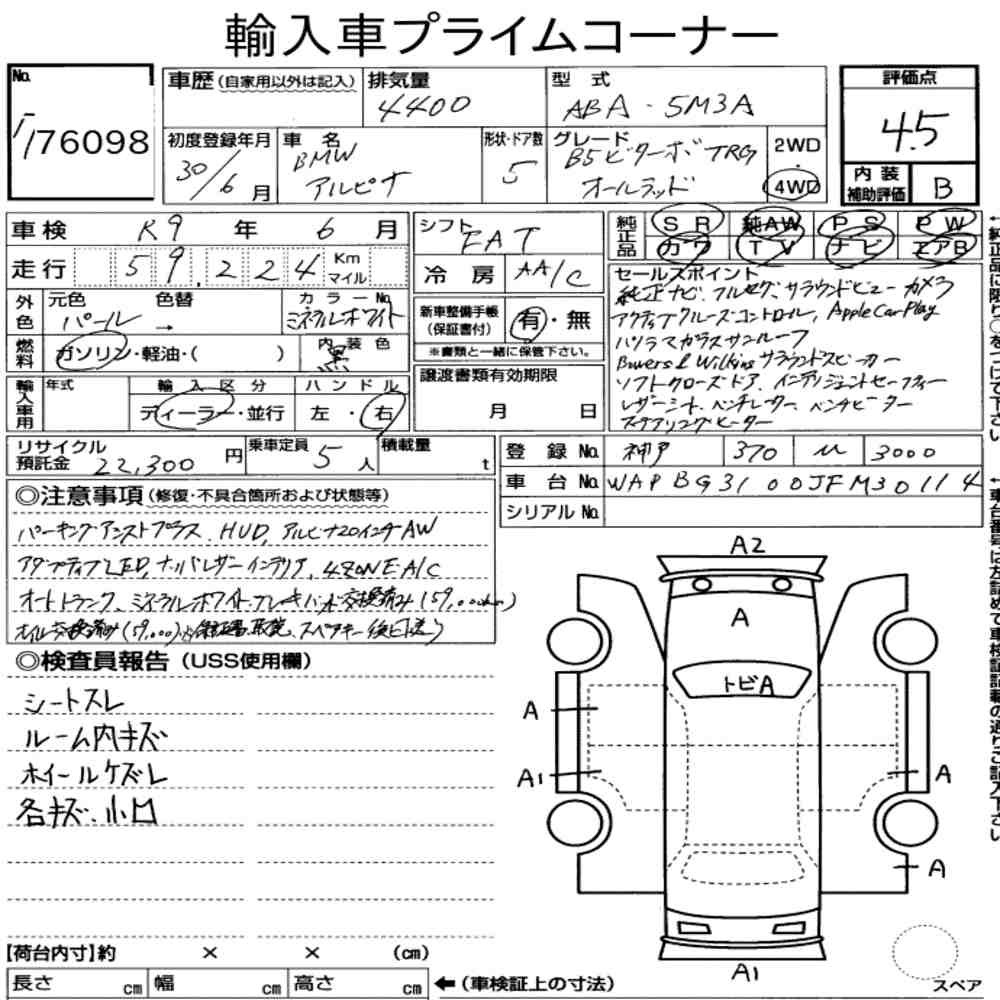 輸入車プライムコーナー
No.
76098
車歴 (自家用以外は記入)
排気量
4400
型式
ABA - 5M3A
評価点
4.5
初度登録年月
30/6月
車名
BMW
アルピナ
形状・ドア数
5
グレード
B5ビターボ TRG
オールラッド
2WD
・
4WD
内装
補助評価
B
車検 R9年 6月
走行 59,224 Km マイル
シフト
FAT
冷房 AA/C
純正品
SR 純AW PS PW
カワ TV ナビ エアB
外色
元色 色替
パール →
カラーNo.
ミネラルホワイト
燃料
ガソリン・軽油・( )
内装色
黒
新車整備手帳
(保証書付)
有・無
※書類と一緒に保管下さい。
セールスポイント
純正ナビ、フルセグ、サラウンドビューカメラ
アクティブクルーズコントロール, Apple CarPlay
パノラマガラスサンルーフ
Bowers & Wilkins サラウンドスピーカー
ソフトクローズドア、インテリジェントセーフティー
レザーシート、ベンチレーター、ベンチヒーター
ステアリングヒーター
輸入車用
年式
輸入区分
ディーラー・並行
ハンドル
左・右
譲渡書類有効期限
月 日
リサイクル
預託金 22,300円
乗車定員 5人
積載量 t
登録No. 神戸 370 3000
車台No. WAPBG3100JFM30114
シリアルNo.
◎注意事項 (修復・不具合箇所および状態等)
パーキングアシストプラス、HUD、アルピナ20インチAW
アダプティブLED、ナッパレザーインテリア、4ZONE A/C
オートトランク、ミネラルホワイト、ブレーキパッド交換済み(59,000km)
オイル交換済み(59,000) 保証書、取説、スペアキー後日送り
◎検査員報告 (USS使用欄)
シートスレ
ルーム内キズ
ホイールケズレ
各キズ、小凹
A2
A
トビA
A
A1
A
A
A1
スペア
【荷台内寸】約 × × (cm)
長さ cm 幅 cm 高さ cm
←(車検証上の寸法)
↑純正品に限り○をつけて下さい
↑車台番号は左詰めで車検証記載の通りご記入下さい